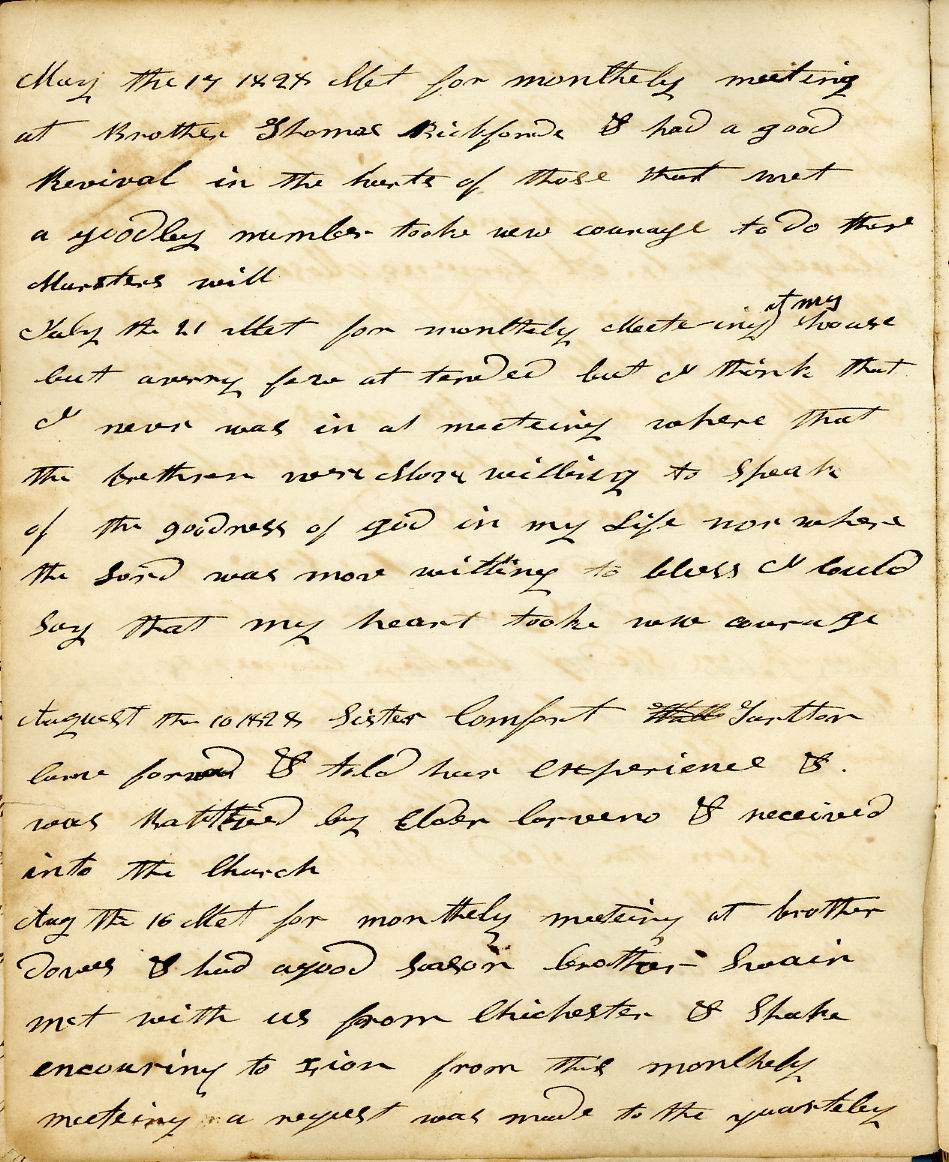 May the 17 1828 Met for monthely meeting
at Brother Thomas Bickfords & had a good
Revival in the harts of those that met
a goodley number tooke new courage to Do there
Marsters will
July the 21 Met for monthely Meeteing at my house
but averry few at tended but I think that
I never was in at meeteing where that
the brethren were More willing to Speak
of the goodness of god in my Life nor where
the Lord was more willing to bless I Could
Say that my heart tooke new courage
August the 10 1828 Sister Comfort Tarlton
Came forward & told her Experience &
was Babtised by Elder & received
into the Church
Aug the 16 Met for monthely meeteing at brother
Dowes & had agood Season brother Swain
met with us from Chichester & Spake
encouring to Zion from this monthely
meeteing a request was made to the quarteley